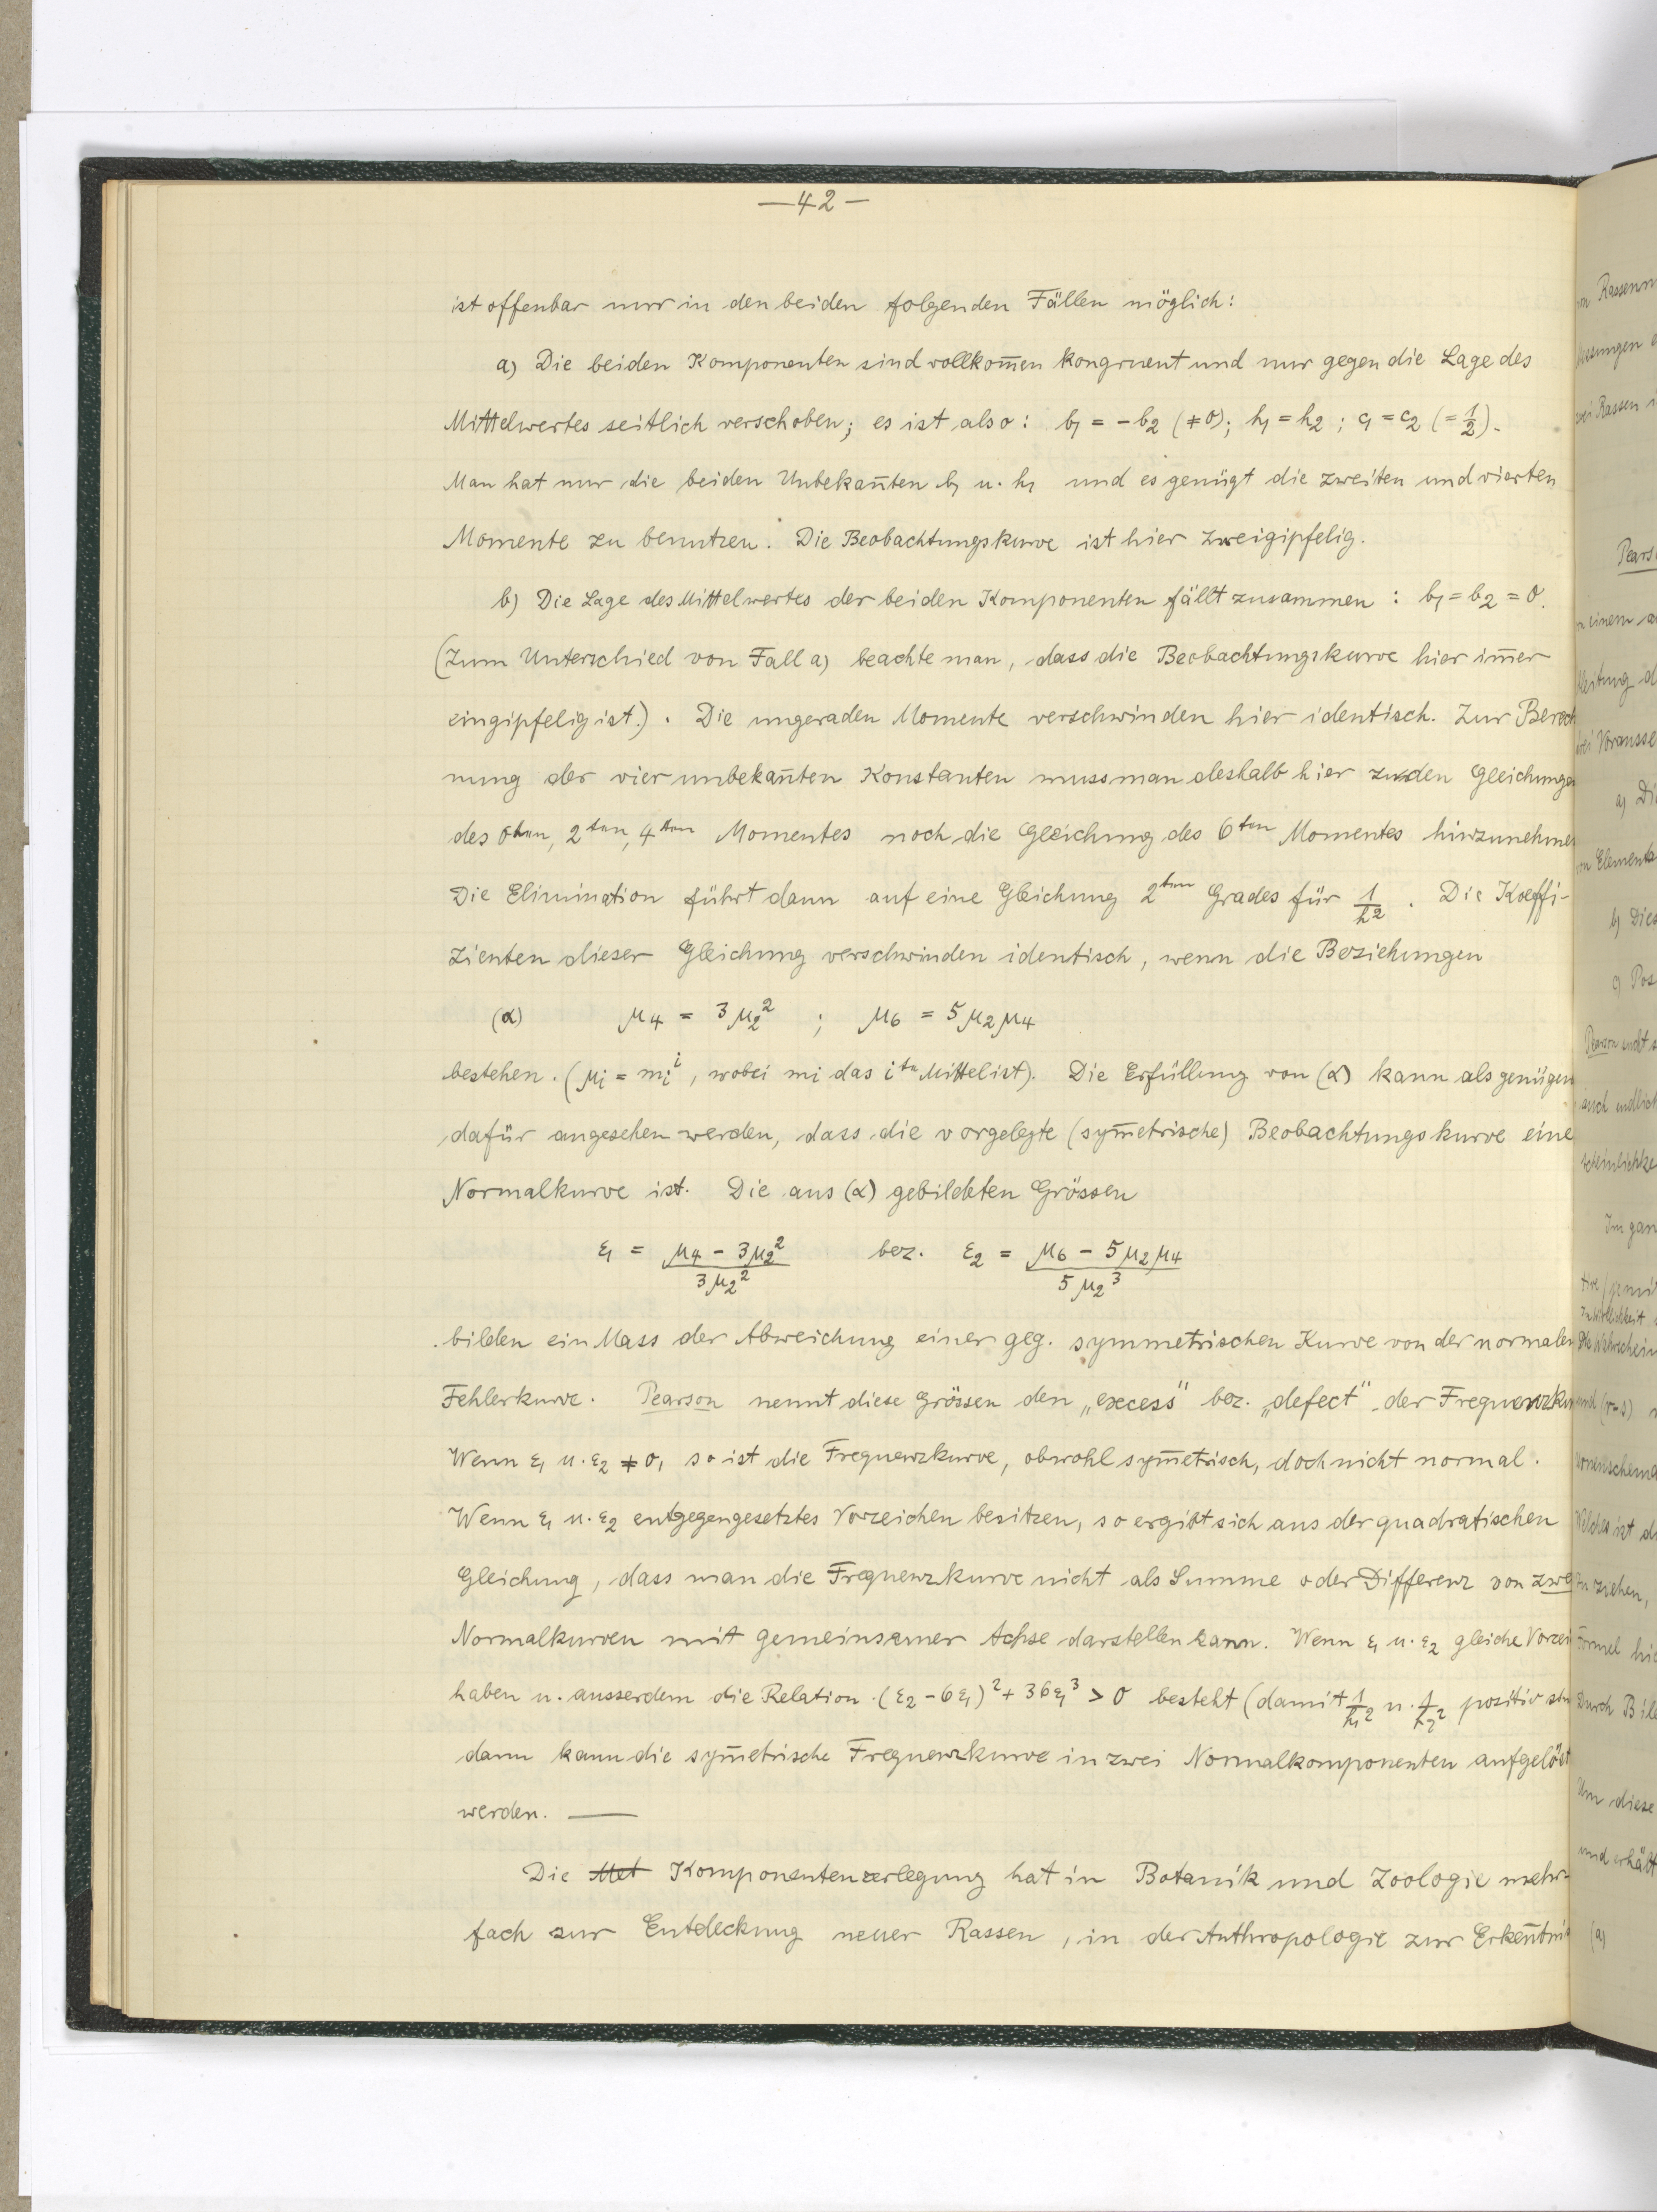 —42—
ist offenbar nur in den beiden folgenden Fällen möglich:
a) Die beiden Komponenten sind vollkom̅en kongruent und nur gegen die Lage des
Mittelwertes seitlich verschoben; es ist also: b₁ = −b₂ (≠0); h₁ = h₂ ; c₁ = c₂ (= 1/2).
Man hat nur die beiden Unbekan̅ten b₁ u. h₁ und es genügt die zweiten und vierten
Momente zu benutzen. Die Beobachtungskurve ist hier zweigipfelig.
b) Die Lage des Mittelwertes der beiden Komponenten fällt zusammen : b₁ = b₂ = 0.
(Zum Unterschied von Fall a) beachte man, dass die Beobachtungskurve hier im̅er
eingipfelig ist.). Die ungeraden Momente verschwinden hier identisch. Zur Berech
nung der vier unbekan̅ten Konstanten muss man deshalb hier zu den Gleichungen
des 0ten, 2ten, 4ten Momentes noch die Gleichung des 6ten Momentes hinzunehmen
Die Elimination führt dann auf eine Gleichung 2ten Grades für 1/h². Die Koeffi-
zienten dieser Gleichung verschwinden identisch, wenn die Beziehungen
(α) μ₄ = 3μ₂² ; μ₆ = 5μ₂μ₄
bestehen. (μᵢ = mᵢⁱ, wobei mᵢ das ite Mittel ist). Die Erfüllung von (α) kann als genügen
dafür angesehen werden, dass die vorgelegte (sym̅etrische) Beobachtungskurve eine
Normalkurve ist. Die aus (α) gebildeten Grössen
ε₁ = (μ₄ − 3μ₂²)/(3μ₂²) bez. ε₂ = (μ₆ − 5μ₂μ₄)/(5μ₂³)
bilden ein Mass der Abweichung einer geg. symmetrischen Kurve von der normalen
Fehlerkurve. Pearson nennt diese Grössen den „excess" bez. „defect" der Frequenzku
Wenn ε₁ u. ε₂ ≠ 0, so ist die Frequenzkurve, obwohl sym̅etrisch, doch nicht normal.
Wenn ε₁ u. ε₂ entgegengesetztes Vorzeichen besitzen, so ergibt sich aus der quadratischen
Gleichung, dass man die Frequenzkurve nicht als Summe oder Differenz von zwe
Normalkurven mit gemeinsamer Achse darstellen kann. Wenn ε₁ u. ε₂ gleiche Vorzei
haben u. ausserdem die Relation (ε₂ − 6ε₁)² + 36ε₁³ > 0 besteht (damit 1/h₁² u. 1/h₂² positiv sin
dann kann die sym̅etrische Frequenzkurve in zwei Normalkomponenten aufgelöst
werden. —
Die Met Komponentenzerlegung hat in Botanik und Zoologie mehr-
fach zur Entdeckung neuer Rassen, in der Anthropologie zur Erken̅tnis